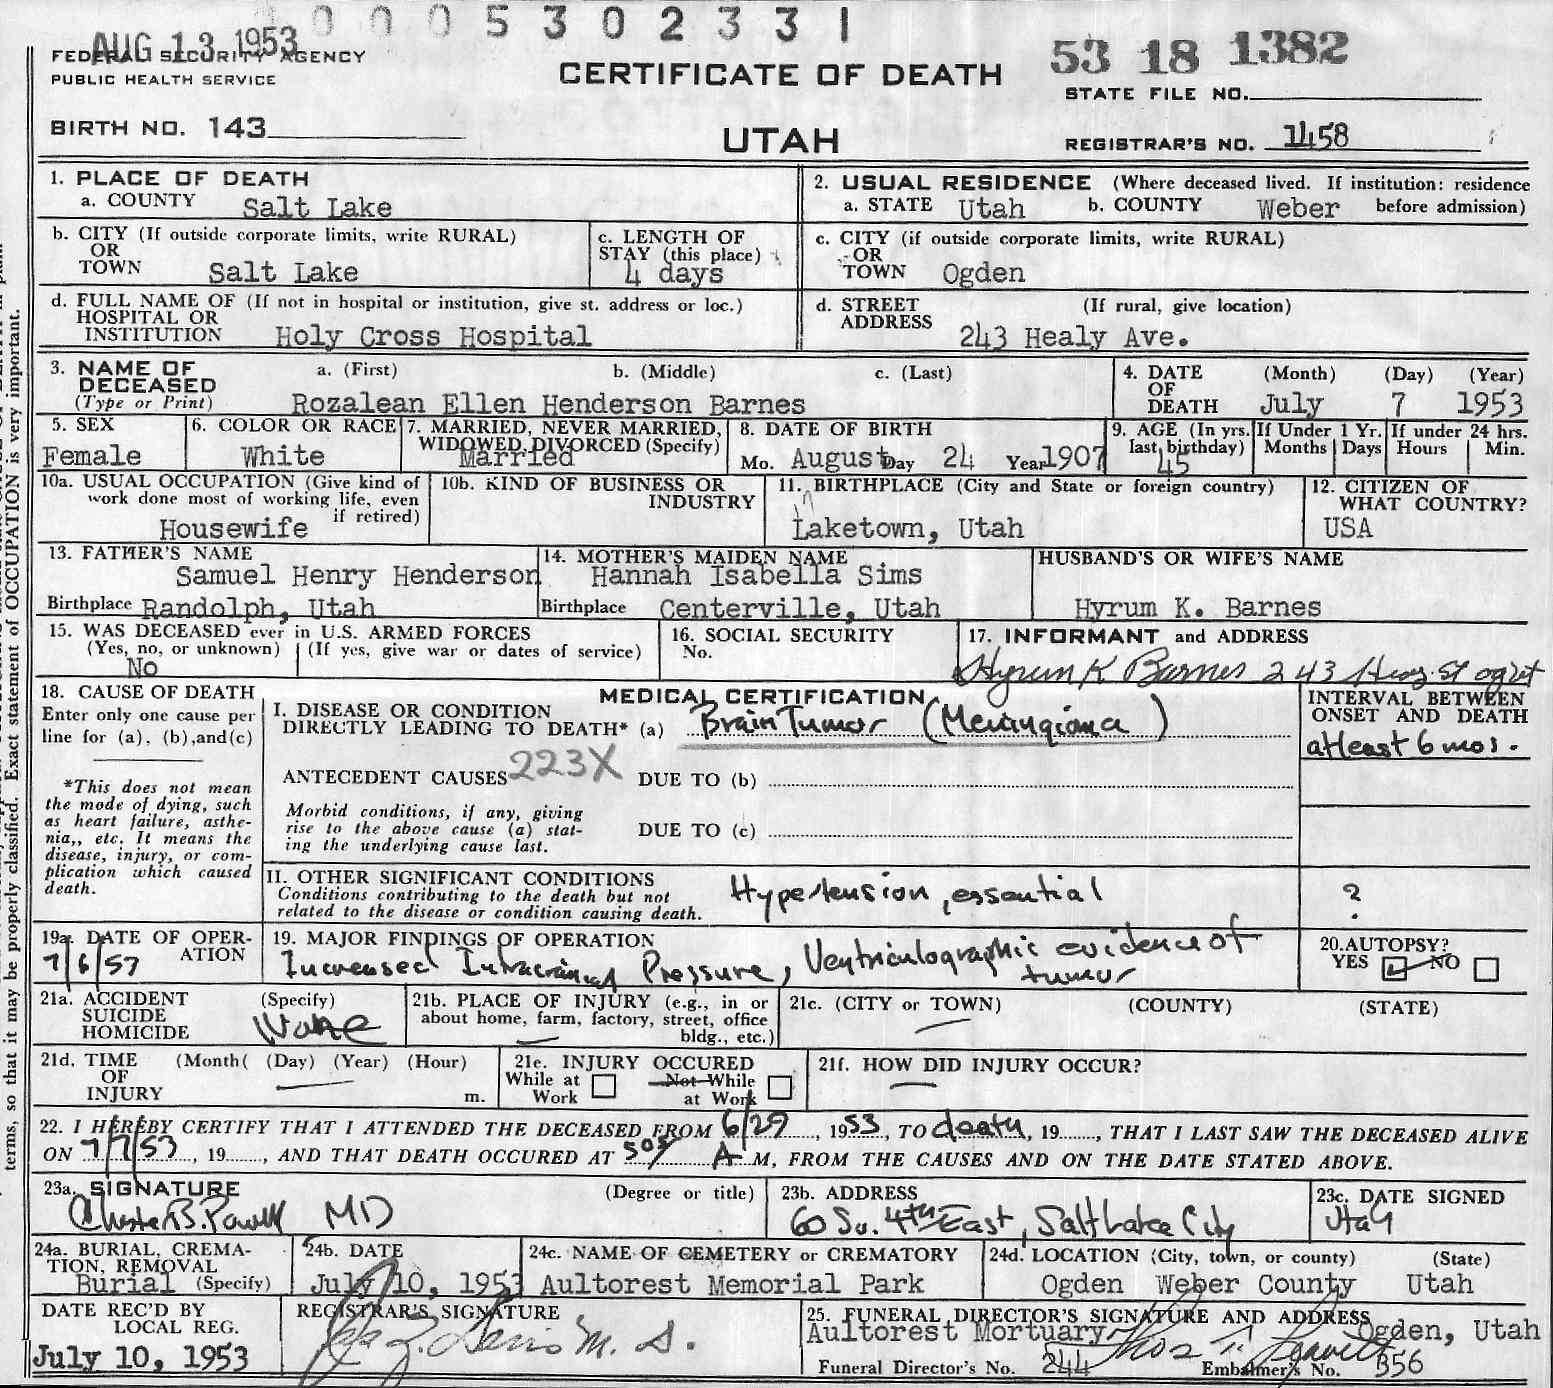 0 0 0 5 3 0 2 3 3 1
AUG 13 1953
FEDERAL SECURITY AGENCY
PUBLIC HEALTH SERVICE
CERTIFICATE OF DEATH
53 18 1382
STATE FILE NO.
BIRTH NO. 143
UTAH
REGISTRAR'S NO. 1458
1. PLACE OF DEATH
a. COUNTY Salt Lake
2. USUAL RESIDENCE (Where deceased lived. If institution: residence
a. STATE Utah b. COUNTY Weber before admission)
b. CITY (If outside corporate limits, write RURAL)
OR
TOWN Salt Lake
c. LENGTH OF
STAY (this place)
4 days
c. CITY (if outside corporate limits, write RURAL)
OR
TOWN Ogden
d. FULL NAME OF (If not in hospital or institution, give st. address or loc.)
HOSPITAL OR
INSTITUTION Holy Cross Hospital
d. STREET (If rural, give location)
ADDRESS
243 Healy Ave.
3. NAME OF a. (First) b. (Middle) c. (Last)
DECEASED
(Type or Print) Rozalean Ellen Henderson Barnes
4. DATE (Month) (Day) (Year)
OF
DEATH July 7 1953
5. SEX
Female
6. COLOR OR RACE
White
7. MARRIED, NEVER MARRIED,
WIDOWED, DIVORCED (Specify)
Married
8. DATE OF BIRTH
Mo. August Day 24 Year 1907
9. AGE (In yrs.
last birthday)
45
If Under 1 Yr.
Months Days
If under 24 hrs.
Hours Min.
10a. USUAL OCCUPATION (Give kind of
work done most of working life, even
if retired)
Housewife
10b. KIND OF BUSINESS OR
INDUSTRY
11. BIRTHPLACE (City and State or foreign country)
Laketown, Utah
12. CITIZEN OF
WHAT COUNTRY?
USA
13. FATHER'S NAME
Samuel Henry Henderson
Birthplace Randolph, Utah
14. MOTHER'S MAIDEN NAME
Hannah Isabella Sims
Birthplace Centerville, Utah
HUSBAND'S OR WIFE'S NAME
Hyrum K. Barnes
15. WAS DECEASED ever in U.S. ARMED FORCES
(Yes, no, or unknown) (If yes, give war or dates of service)
No
16. SOCIAL SECURITY
No.
17. INFORMANT and ADDRESS
Hyrum K Barnes 243
18. CAUSE OF DEATH
Enter only one cause per
line for (a), (b),and(c)
*This does not mean
the mode of dying, such
as heart failure, asthe-
nia,, etc. It means the
disease, injury, or com-
plication which caused
death.
MEDICAL CERTIFICATION
I. DISEASE OR CONDITION
DIRECTLY LEADING TO DEATH* (a) Brain Tumor (Meningioma)
ANTECEDENT CAUSES 223X DUE TO (b)
Morbid conditions, if any, giving
rise to the above cause (a) stat-
ing the underlying cause last.
DUE TO (c)
INTERVAL BETWEEN
ONSET AND DEATH
at least 6 mos.
II. OTHER SIGNIFICANT CONDITIONS
Conditions contributing to the death but not
related to the disease or condition causing death.
Hypertension, essential
?
19a. DATE OF OPER-
ATION
7/6/57
19. MAJOR FINDINGS OF OPERATION
Increased Intracranial Pressure, Ventriculographic evidence of
tumor
20. AUTOPSY?
YES NO
21a. ACCIDENT (Specify)
SUICIDE
HOMICIDE
None
21b. PLACE OF INJURY (e.g., in or
about home, farm, factory, street, office
bldg., etc.)
21c. (CITY or TOWN) (COUNTY) (STATE)
21d. TIME (Month( (Day) (Year) (Hour)
OF
INJURY m.
21e. INJURY OCCURED
While at Not While
Work at Work
21f. HOW DID INJURY OCCUR?
22. I HEREBY CERTIFY THAT I ATTENDED THE DECEASED FROM 6/29, 1953, TO death, 19......, THAT I LAST SAW THE DECEASED ALIVE
ON 7/7/53, 19......, AND THAT DEATH OCCURED AT 505 A M, FROM THE CAUSES AND ON THE DATE STATED ABOVE.
23a. SIGNATURE (Degree or title)
Chester B. Powell MD
23b. ADDRESS
60 So. 4th East, Salt Lake City
23c. DATE SIGNED
Utah
24a. BURIAL, CREMA-
TION, REMOVAL
Burial (Specify)
24b. DATE
July 10, 1953
24c. NAME OF CEMETERY or CREMATORY
Aultorest Memorial Park
24d. LOCATION (City, town, or county) (State)
Ogden Weber County Utah
DATE REC'D BY
LOCAL REG.
July 10, 1953
REGISTRAR'S SIGNATURE
M. D.
25. FUNERAL DIRECTOR'S SIGNATURE AND ADDRESS
Aultorest Mortuary Ogden, Utah
Funeral Director's No. 244 Embalmer's No. 356
terms, so that it may be properly classified. Exact statement of OCCUPATION is very important.